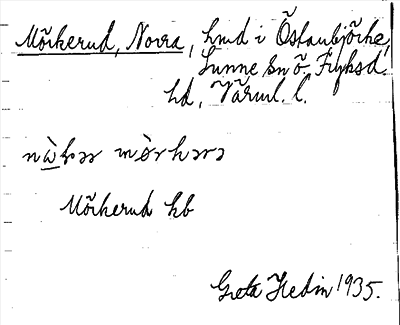 Mörkerud, Norra, hmd i Östanbjörke,
Sunne sn Ö. Fryksd.
hd, Värml. l.
mörkərə
Mörkerud hb
Greta Hedin 1935.